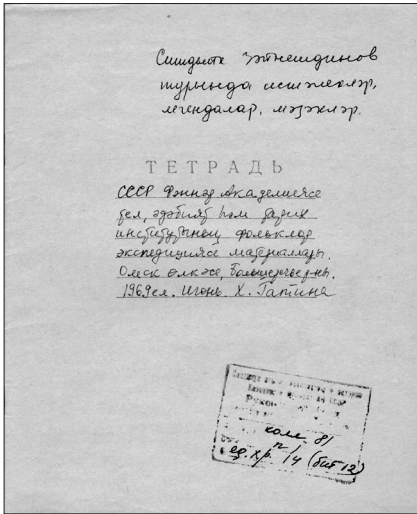 Ситдыйк Зәйнетдинов
турында истәлекләр,
легендалар, мәзәкләр.
ТЕТРАДЬ
СССР Фәннәр Академиясе
тел, әдәбият һәм тарих
институтының фольклор
экспедициясе материаллары.
Омск өлкәсе, р-ны.
1969 ел. Июнь. Х. Гатина
колл. 81
ед. хр. 14 (бит 12)